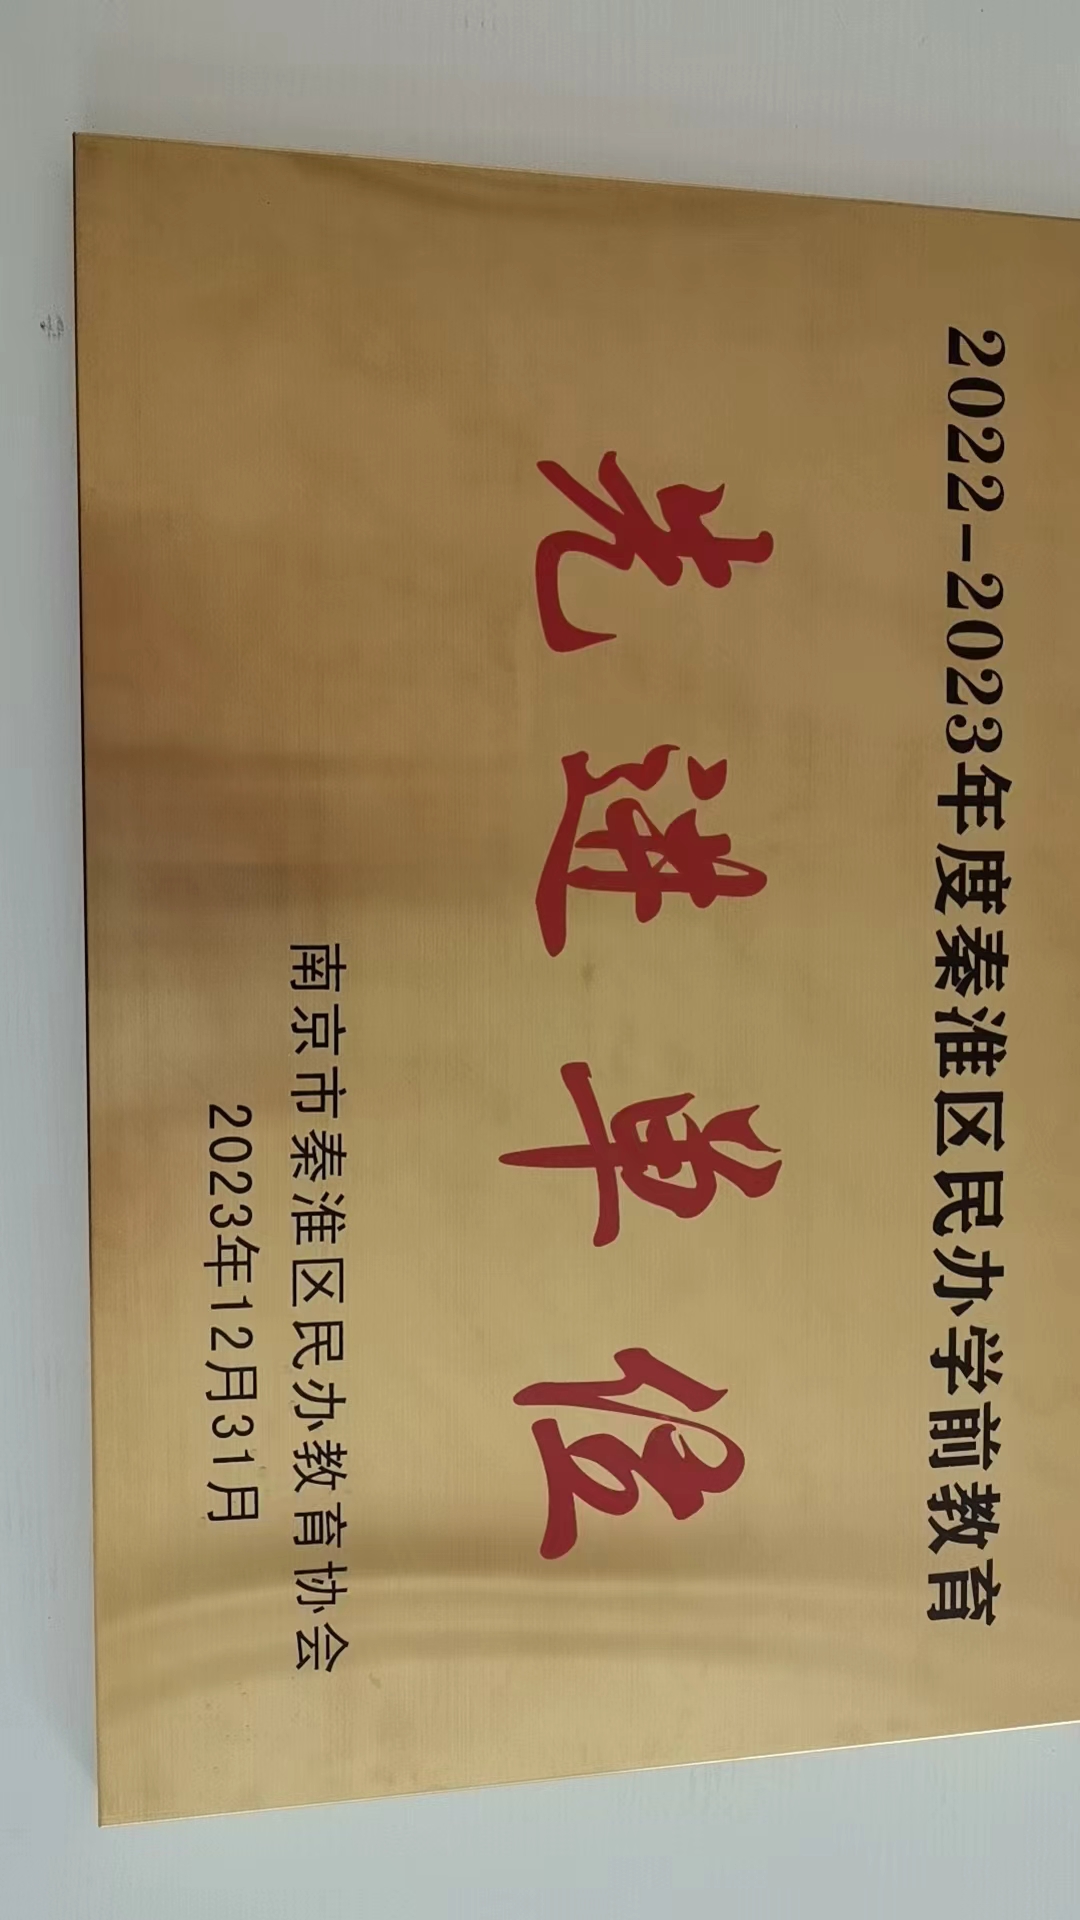 2022-2023年度秦淮区民办学前教育
先进单位
南京市秦淮区民办教育协会
2023年12月31月